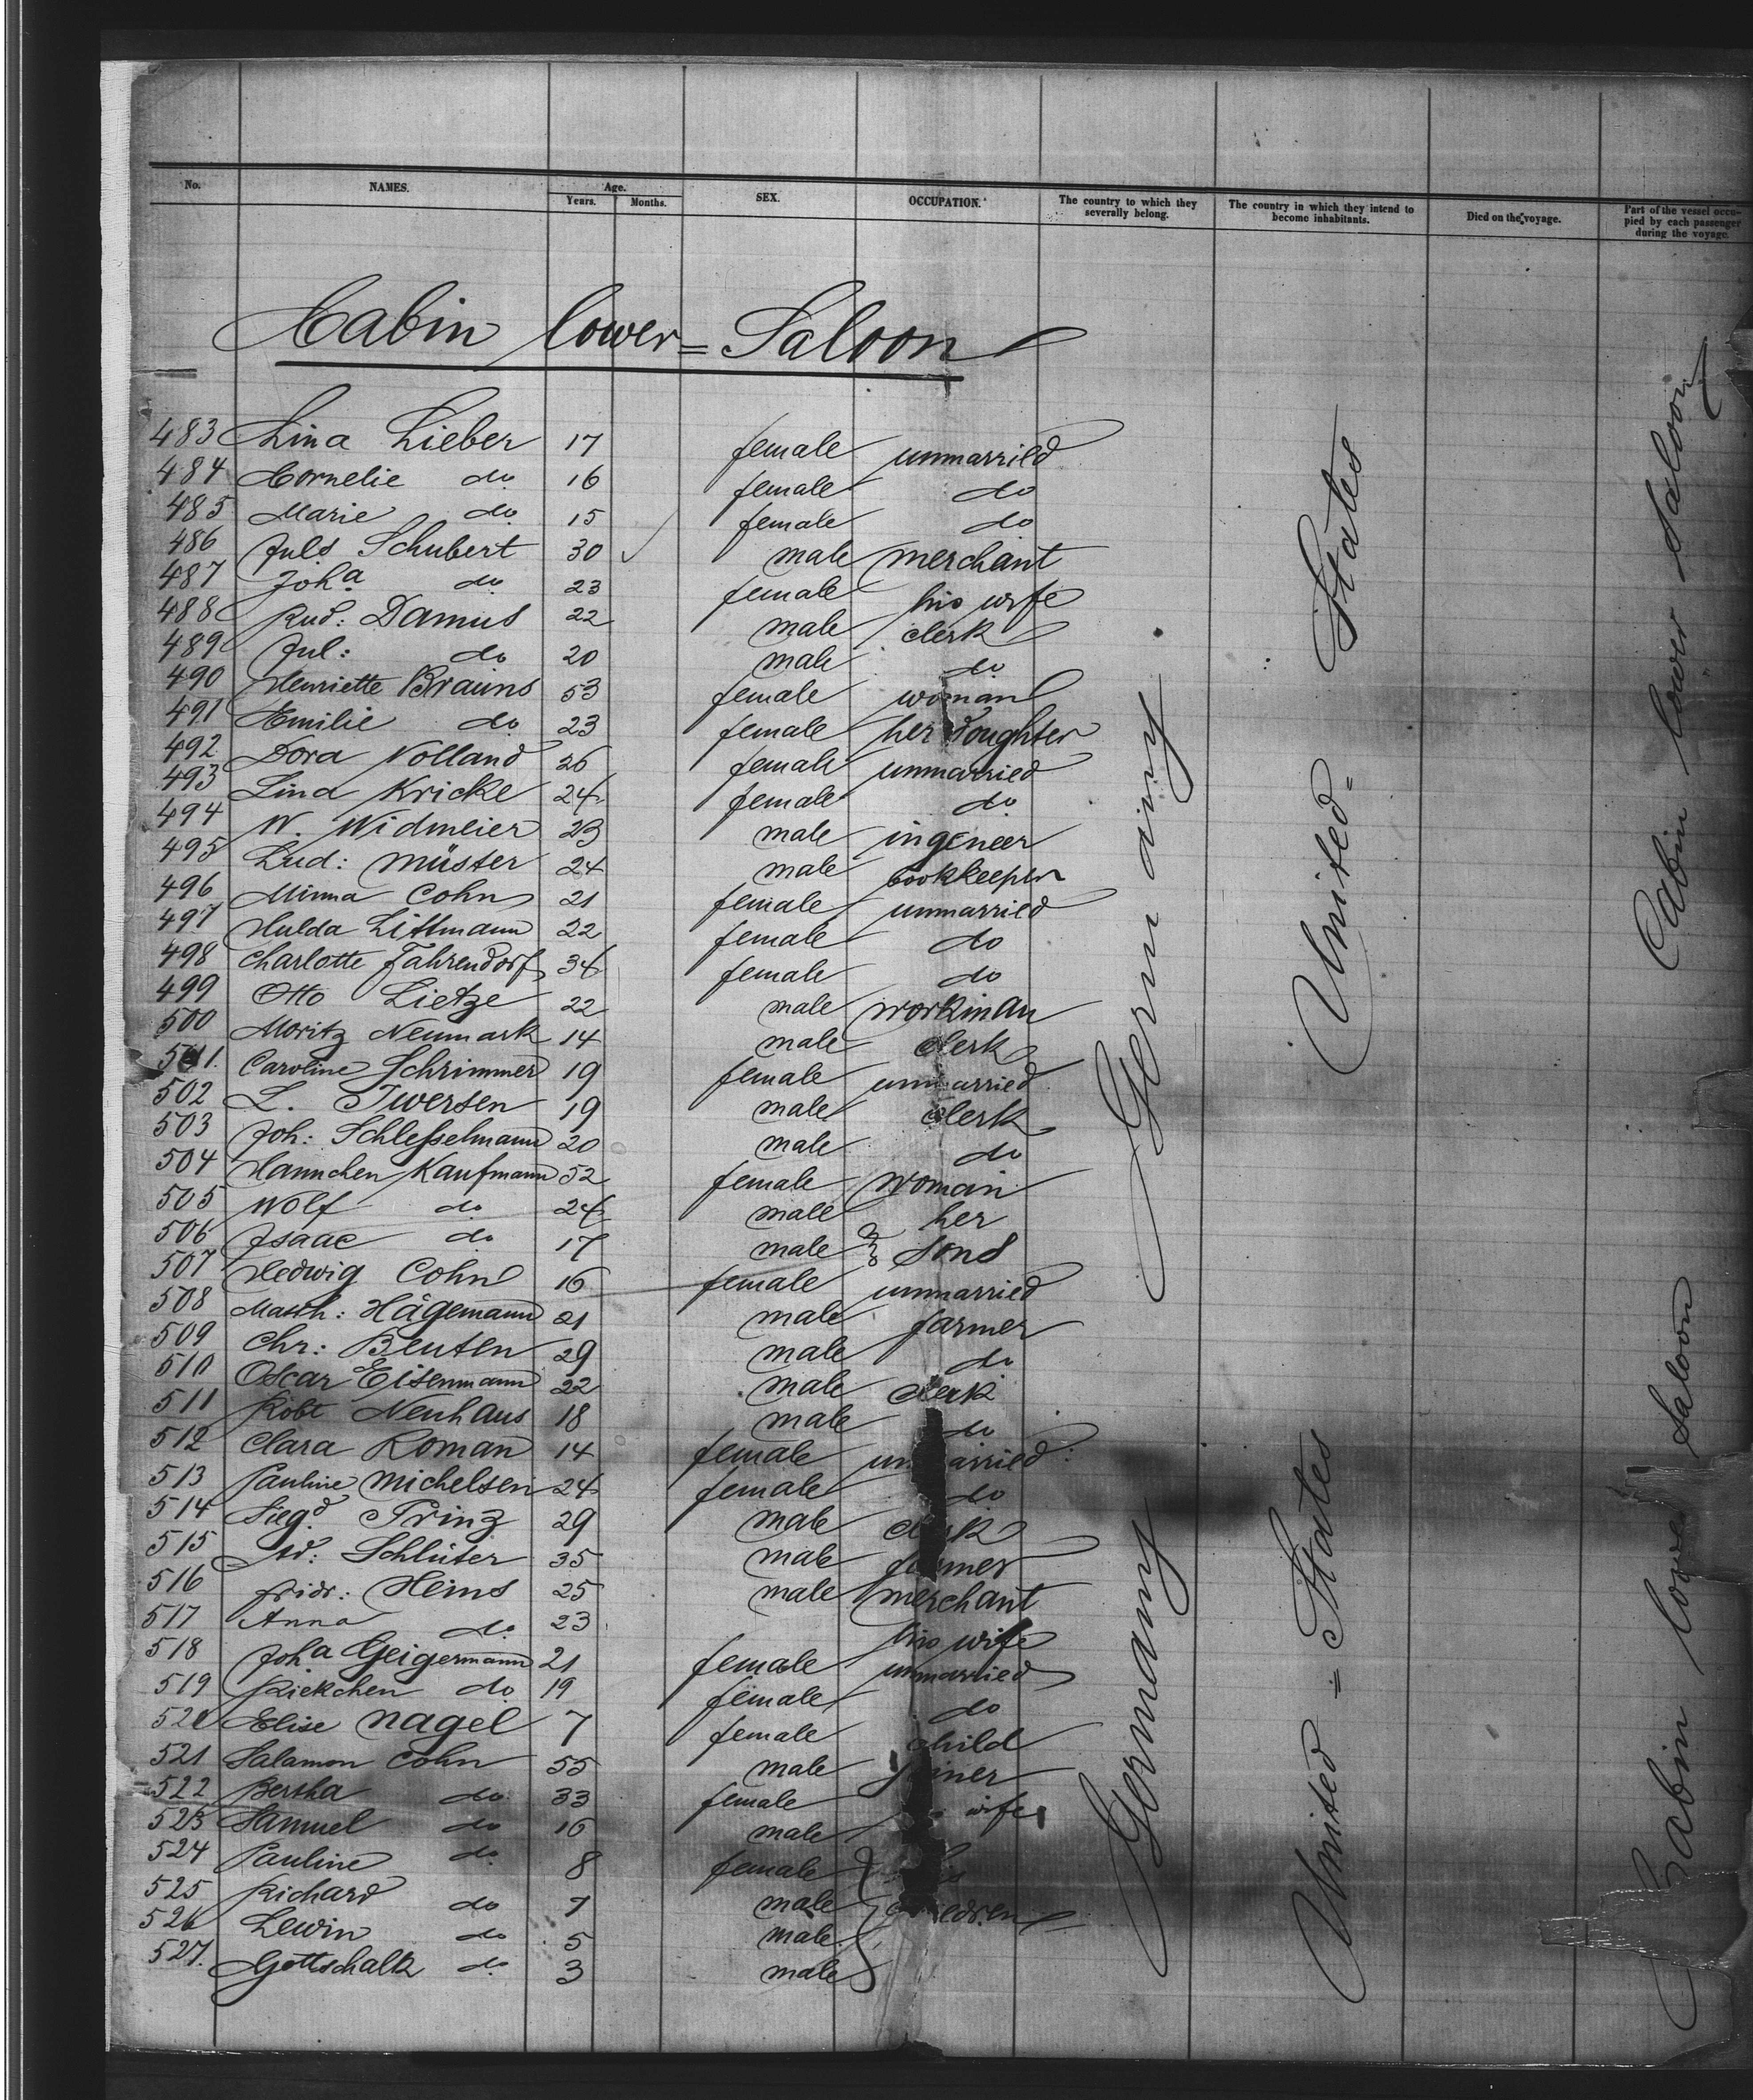 No. NAMES. Age. Years. Months. SEX. OCCUPATION. The country to which they severally belong. The country in which they intend to become inhabitants. Died on the voyage. Part of the vessel occupied by each passenger during the voyage.
Cabin lower = Saloon
483 Lina Lieber 17 female unmarried
484 Cornelie do 16 female do
485 Marie do 15 female do
486 Juls Schubert 30 male merchant
487 Joha do 23 female his wife
488 Rud: Damus 22 male clerk
489 Jul: do 20 male do
490 Henriette Brauns 53 female woman
491 Emilie do 23 female her doughter
492 Dora Volland 26 female unmarried
493 Lina Kricke 24 female do
494 W. Widmeier 23 male ingeneer
495 Lud: Müster 24 male bookkeeper
496 Minna Cohn 21 female unmarried
497 Hulda Littmann 22 female do
498 Charlotte Fahrendorf 34 female do
499 Otto Lietze 22 male workman
500 Moritz Neumark 14 male clerk
501. Caroline Schrimmer 19 female unmarried
502 L. Iwersen 19 male clerk
503 Joh: Schlesselmann 20 male do
504 Hannchen Kaufmann 52 female woman
505 Wolf do 24 male her
506 Isaac do 17 male sons
507 Hedwig Cohn 16 female unmarried
508 Hägemann 21 male farmer
509 Chr: Beuten 29 male do
510 Oscar Eisenmann 22 male clerk
511 Robt Neuhaus 18 male do
512 Clara Roman 14 female unmarried
513 Pauline Michelsen 24 female do
514 Siegd Prinz 29 male clerk
515 Ad: Schlüter 35 male farmer
516 fridr: Heins 25 male merchant
517 Anna do 23 his wife
518 Joha Geigermann 21 female unmarried
519 Rickchen do 19 female do
520 Elise Nagel 7 female child
521 Salamon Cohn 55 male
522 Bertha do 33 female wife
523 Samuel do 16 male
524 Pauline do 8 female his
525 Richard do 7 male children
526 Lewin do 5 male
527. Gottschalk do 3 male
Germany
Germany
United = States
United = States
Cabin lower Saloon
Cabin lower Saloon